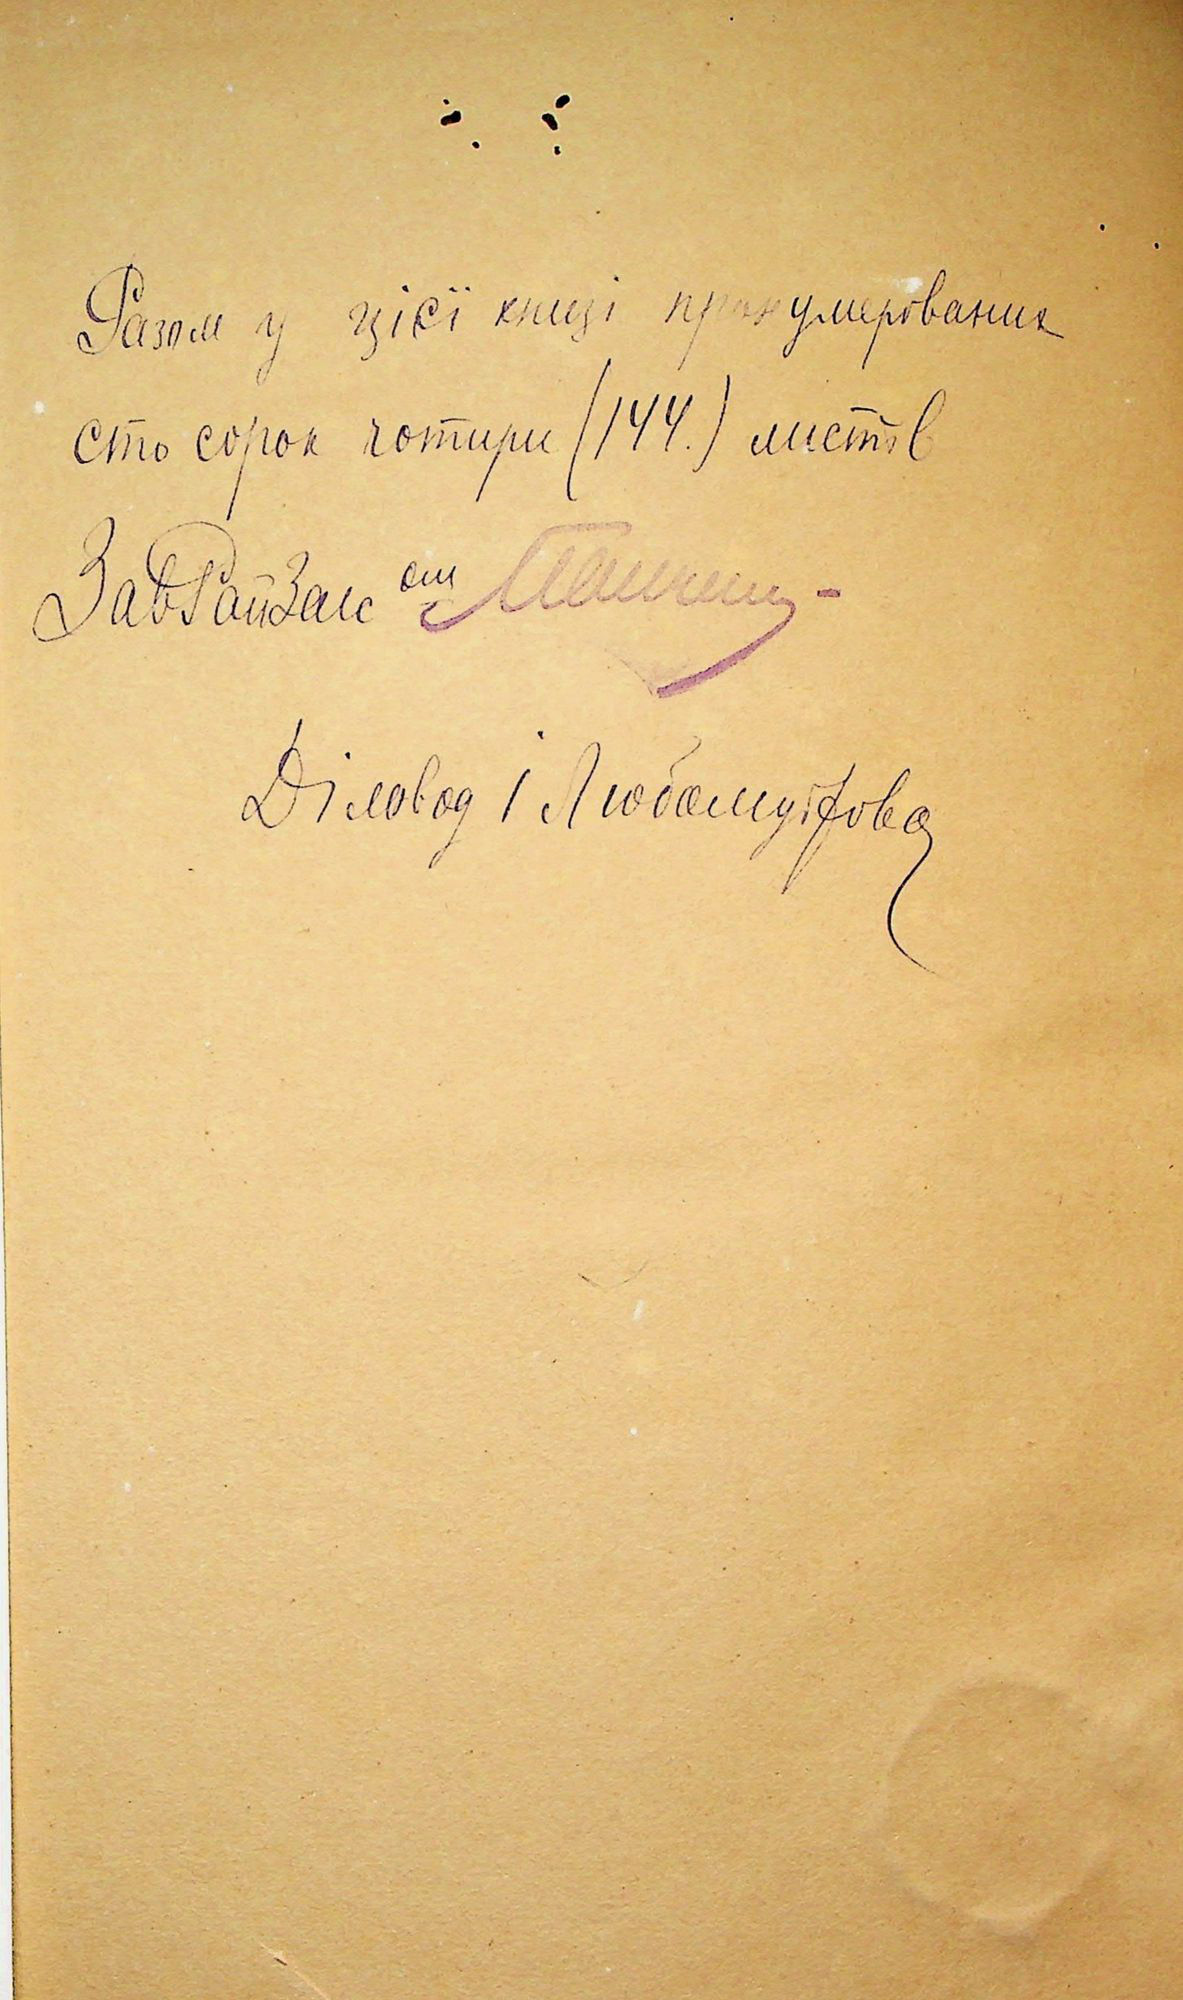 Разом у цієї книзі пронумерованих
сто сорок чотири (144.) листів
ЗавРайЗаг
Діловод